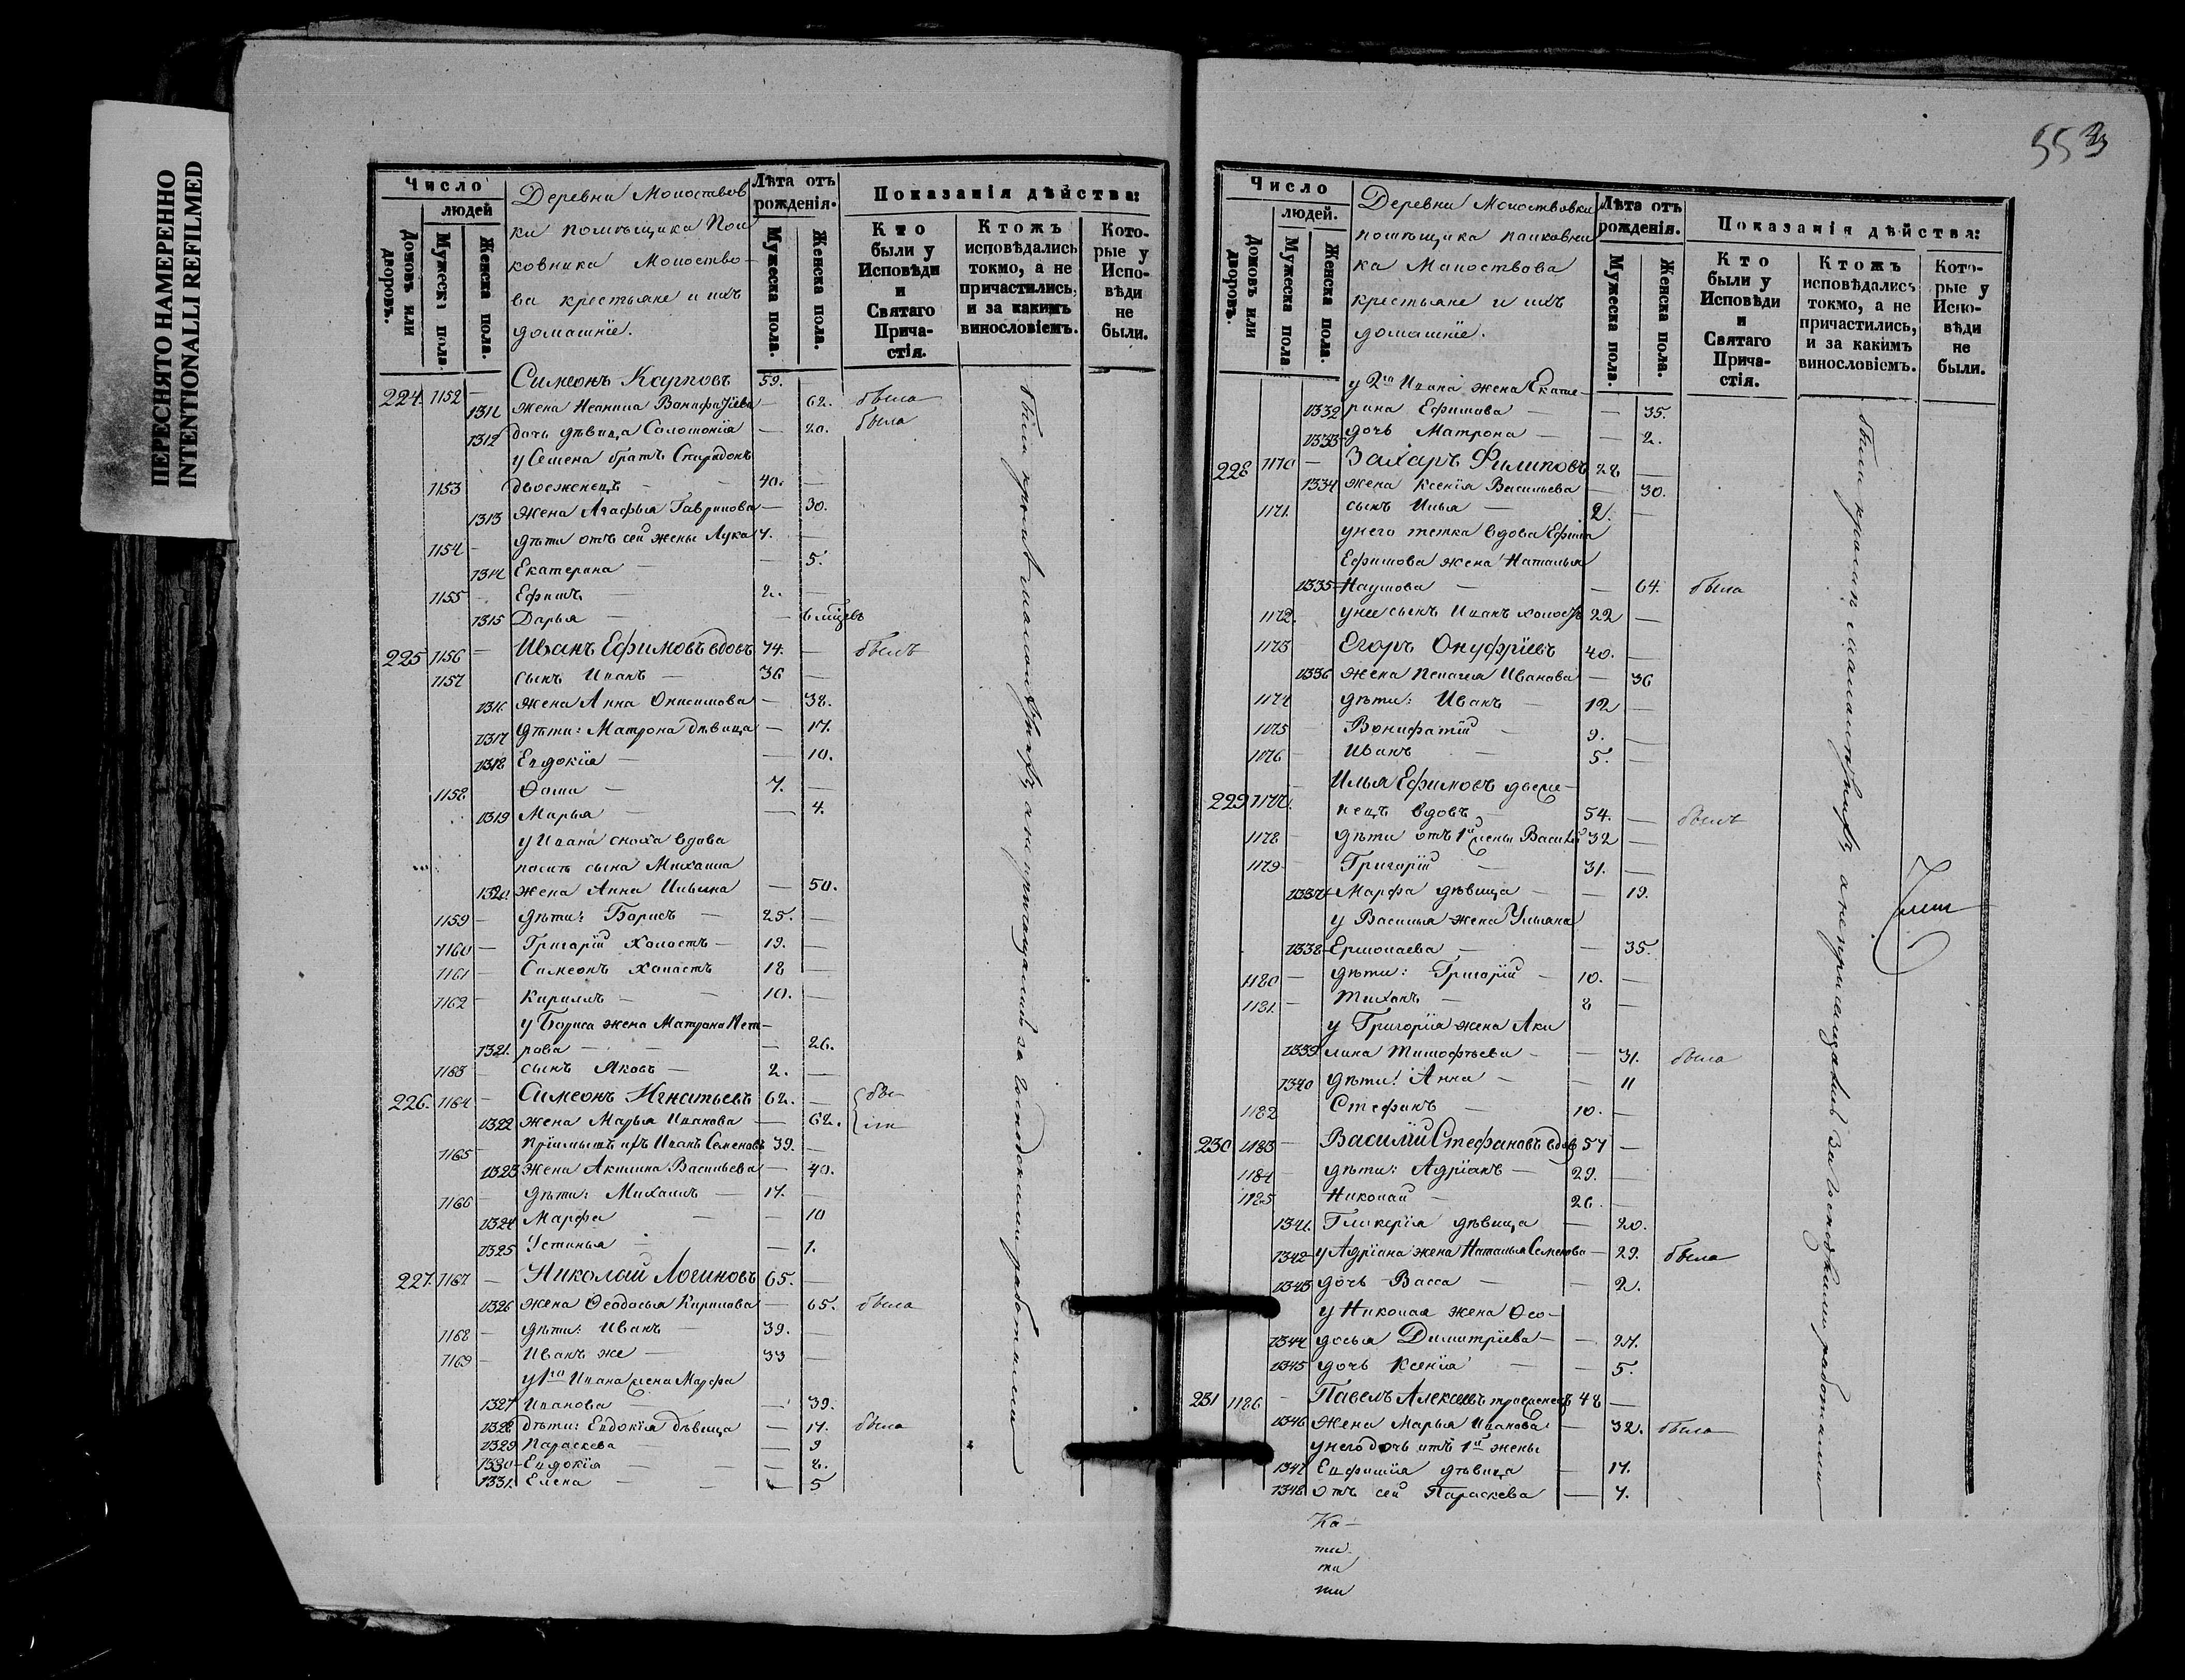 ПЕРЕСНЯТО НАМЕРЕННО
INTENTIONALLI REFILMED
Число
людей
Домовъ или дворовъ.
Мужеска пола
Женска пола.
Деревни Молоствов
ки помѣщика Пол
ковника Молоство-
ва крестьяне и ихъ
домашніе.
Лѣта отъ
рожденія.
Мужеска пола.
Женска пола.
Показанія дѣйства:
Кто
были у
Исповѣди
и
Святаго
Прича-
стія.
Ктожъ
исповѣдались
токмо, а не
причастились,
и за какимъ
винословіемъ.
Кото-
рые у
Испо-
вѣди
не
были.
224. 1152 — Симеонъ Карповъ 59.
1311 жена Неонила Вонифатіева — 62. была
1312 дочь дѣвица Соломонія — 20. была
у Семена братъ Спиридонъ
1153 двоеженецъ — 40. —
1313 жена Агафья Гаврилова — 30.
1154 — дѣти отъ сей жены Лука 7. —
1314 Екатерина — — 5.
1155 — Ефимъ — 2. —
1315 Дарья — — 6 мѣцевъ
225 1156 — Иванъ Ефимовъ вдовъ 74. — былъ
1157 сынъ Иванъ — 36 —
1316 жена Анна Онисимова — 38.
1317 дѣти: Матрона дѣвица — 17.
1318 Евдокія — — 10.
1158 Ѳома — 7. —
1319 Марья — — 4.
у Ивана сноха вдова
послѣ сына Михаила
1320. жена Анна Ильина — 50.
1159 — дѣти: Борисъ — 25. —
1160 — Григорій холостъ — 19. —
1161 — Симеонъ холостъ 18 —
1162 — Кирилъ — 10. —
у Бориса жена Матрона Пет-
1321. рова — — 26.
1163 — сынъ Яковъ — 2. —
226. 1164 — Симеонъ Игнатьевъ 62. — бы-
1322 жена Марья Иванова — 62. ли
1165 — пріемышъ ихъ Иванъ Семеновъ 39. —
1323 жена Акилина Васильева — 40.
1166 — дѣти: Михаилъ — 17. —
1324 Марфа — — 10
1325 Устинья — — 1.
227. 1167 — Николай Логиновъ 65. —
1326 жена Ѳеодосья Кирилова — 65. была
1168 — дѣти: Иванъ — 39. —
1169 — Иванъ же — 33 —
у 1го Ивана жена Марфа
1327 Иванова — — 39.
1328 дѣти: Евдокія дѣвица — 17. была
1329 Параскева — — 9
1330 — Евдокія — — 8.
1331. Елена — — 5
а не причащались за господскими работами
553
Число
людей.
Домовъ или дворовъ.
Мужеска пола
Женска пола.
Деревни Молоствовки
помѣщика полковни
ка Молоствова
крестьяне и ихъ
домашніе.
Лѣта отъ
рожденія.
Мужеска пола.
Женска пола.
Показанія дѣйства:
Кто
были у
Исповѣди
и
Святаго
Прича-
стія.
Ктожъ
исповѣдались
токмо, а не
причастились,
и за какимъ
винословіемъ.
Кото-
рые у
Испо-
вѣди
не
были.
у 2го Ивана жена Екате-
1332 рина Ефимова — — 35.
1333 дочь Матрона — — 2.
228 1170 — Захаръ Филиповъ 28 —
1334 жена Ксенія Васильева — 30.
1171. сынъ Илья — 2. —
у него тетка вдова Ефима
Ефимова жена Наталья
1335 Наумова — — 64. была
1172. у нее сынъ Иванъ холостъ 22 —
1173 Егоръ Онуфріевъ 40. —
1336 жена Пелагея Иванова — 36
1174 дѣти: Иванъ — 12 —
1175 Вонифатій 9. —
1176 Иванъ — 5. —
Илья Ефимовъ двоеже-
229 1177. нецъ вдовъ — 54. — былъ
1178 — дѣти отъ 1й жены Василій 32 —
1179 — Григорій — 31. —
1337 Марфа дѣвица — — 19.
у Василья жена Ульяна
1338 Ермолаева — — 35.
1180 — дѣти: Григорій — 10. —
1181. — Тихонъ — 8 —
у Григорія жена Аки
1339 лина Тимофѣева — — 31. была
1340 дѣти: Анна — — 11
1182 Стефанъ — 10. —
230 1183 — Василій Стефановъ вдовъ 57 —
1184 — дѣти: Адріанъ — 29. —
1185 Николай — 26. —
1341. Гликерія дѣвица — 20.
1342 — у Адріана жена Наталья Семенова — 29. была
1343 дочь Васса — — 2.
у Николая жена Ѳео-
1344 досья Димитріева — — 27.
1345 дочь Ксенія — — 5.
231 1186 — Павелъ Алексеевъ троеженецъ 48 —
1346 жена Марья Иванова — 32. была
у него дочь отъ 1й жены
1347 Евфимія дѣвица — 17.
1348 отъ сей Параскева — 7.
а не причащались за господскими работами